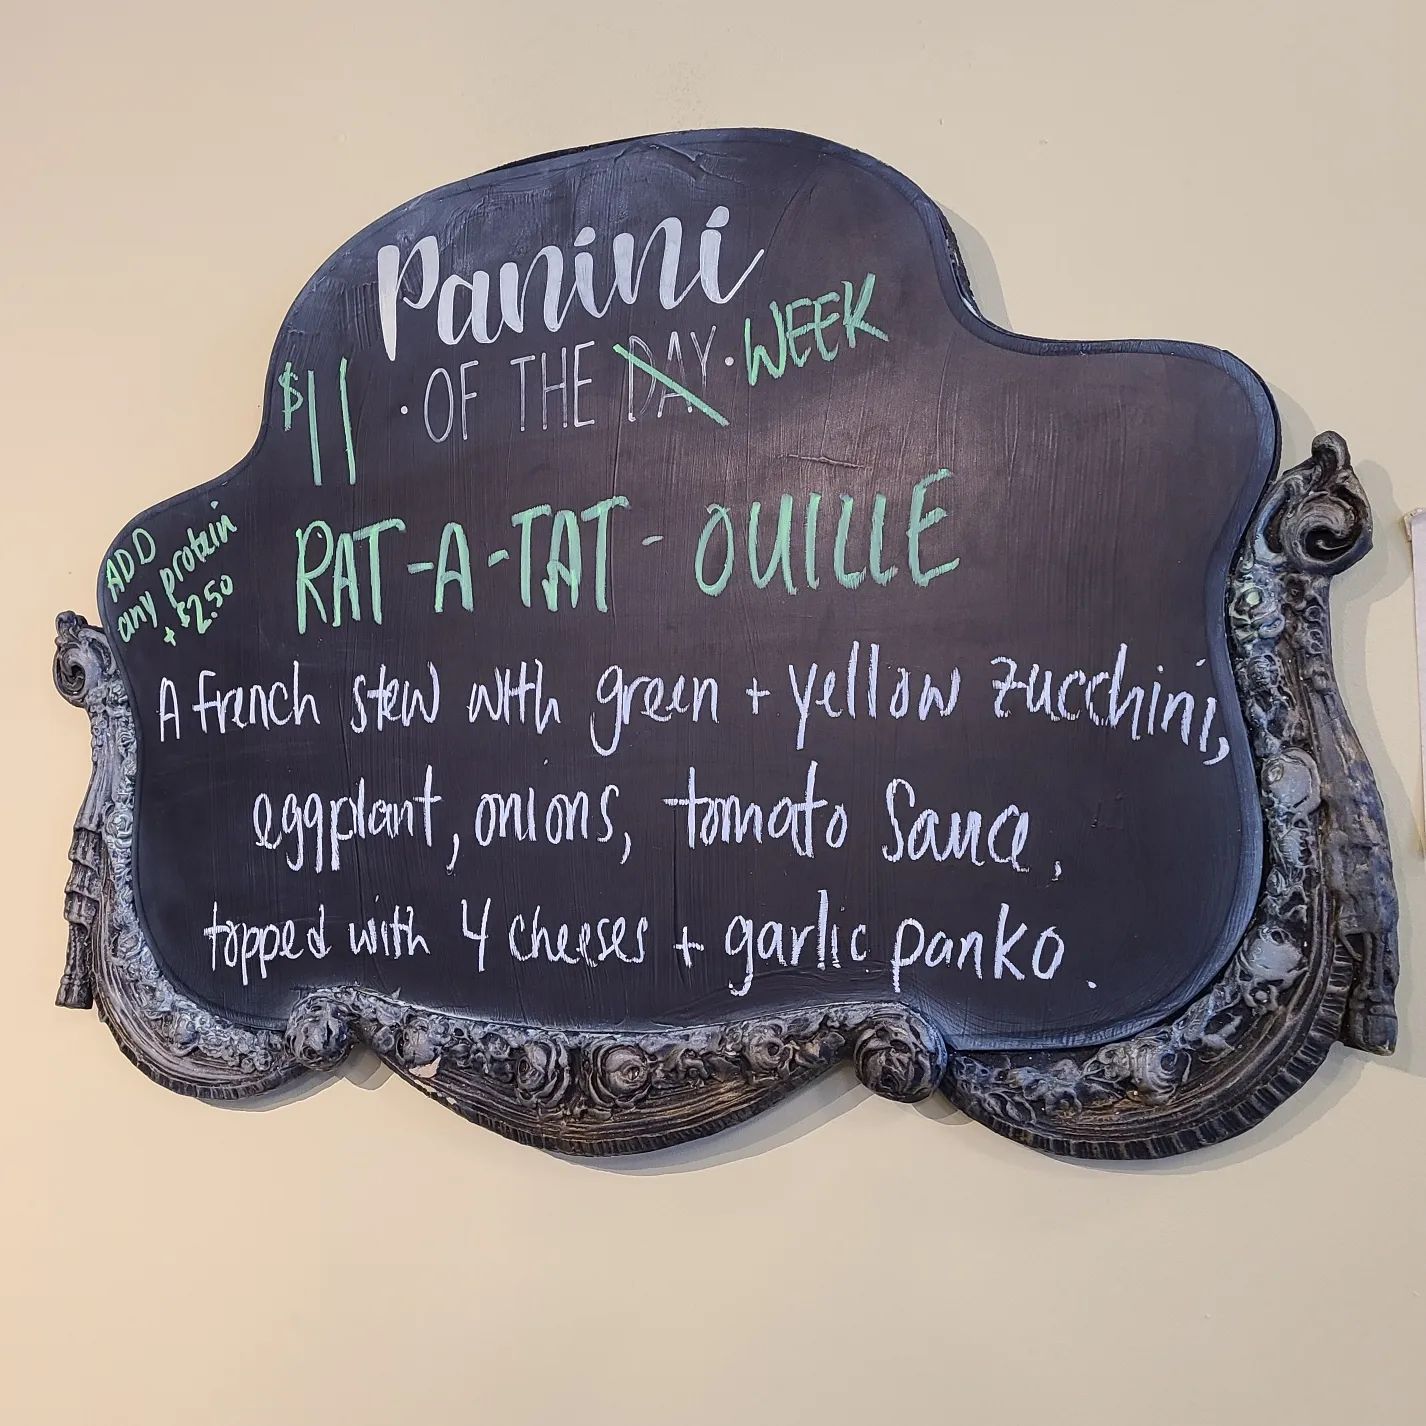 Panini
$11 · OF THE DAY · WEEK
RAT-A-TAT-OUILLE
ADD
any protein
+ $2.50
A french stew with green + yellow zucchini,
eggplant, onions, tomato sauce,
topped with 4 cheeses + garlic panko.